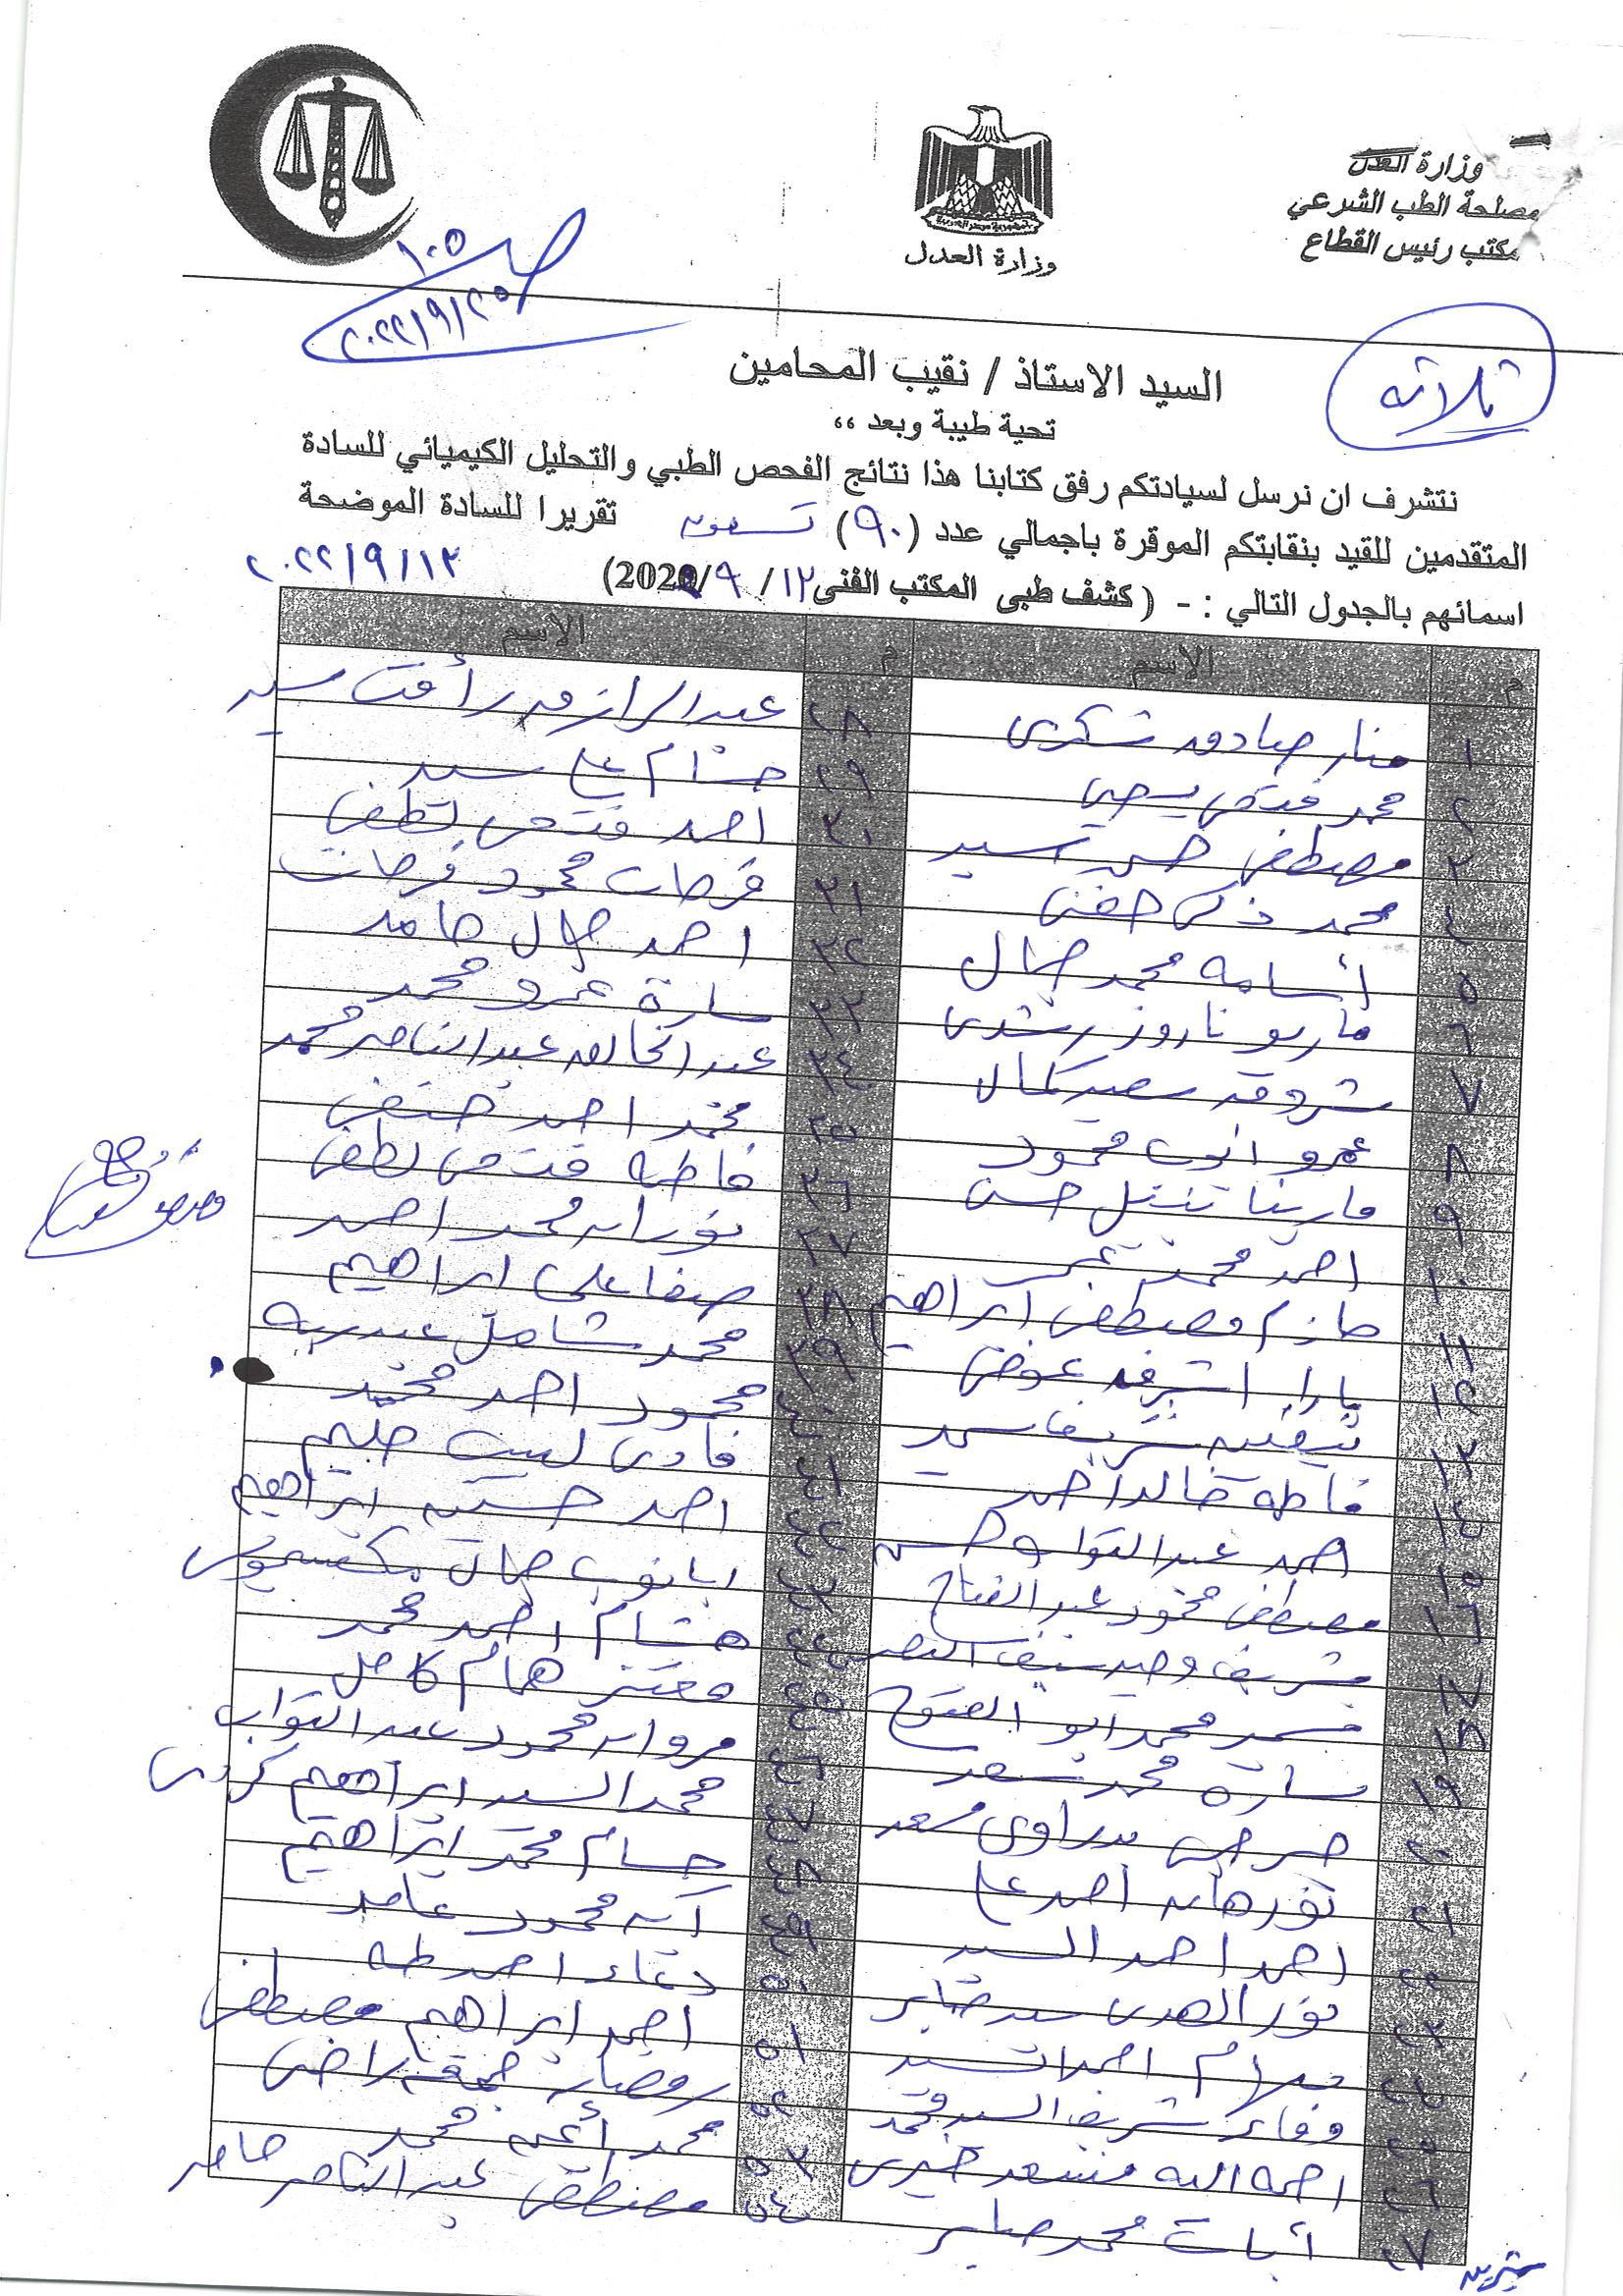 وزارة العدل
مصلحة الطب الشرعي
مكتب رئيس القطاع
وزارة العدل
ص ١٠٥
٢٠٢٢/٩/٢٥
ثلاثه
السيد الاستاذ / نقيب المحامين
تحية طيبة وبعد ،،
نتشرف ان نرسل لسيادتكم رفق كتابنا هذا نتائج الفحص الطبي والتحليل الكيميائي للسادة
المتقدمين للقيد بنقابتكم الموقرة باجمالي عدد (٩٠) تسعون تقريرا للسادة الموضحة
اسمائهم بالجدول التالي : - ( كشف طبى المكتب الفنى ١٢/ ٩/2022) ٢٠٢٢/٩/١٣
م الاسم م الاسم
١ منار صادق شكرى ٢٨ عبد الرازق رأفت سيد
٢ محمد فتحى يحيى ٢٩ حسام على سيد
٣ مصطفى حسن سيد ٣٠ احمد فتحى لطفى
٤ محمد زكى حفنى ٣١ فرحات محمود فرحات
٥ أسامه محمد جمال ٣٢ احمد جمال حامد
٦ ماريو ناروز رشدى ٣٣ سارة عمرو محمد
٧ شروق سعيد كمال ٣٤ عبد الخالق عبد الناصر محمد
٨ عمرو ايوب محمود ٣٥ محمد احمد حنفى
٩ مارينا حسن ٣٦ فاطمه فتحى لطفى
١٠ احمد محمد ٣٧ نوران محمد احمد
١١ حازم مصطفى ابراهيم ٣٨ صفا على ابراهيم
١٢ يارا اشرف عوض ٣٩ محمد شامل عبدربه
١٣ نيفين شريف سيد ٤٠ محمود احمد محمد
١٤ فاطمه خالد احمد ٤١ فادى لبيب حليم
١٥ احمد عبد التواب حسن ٤٢ احمد حسين ابراهيم
١٦ مصطفى محمود عبد الفتاح ٤٣ ابانوب جمال مكسيموس
١٧ شريف وحيد ٤٤ هشام احمد محمد
١٨ محمد ابو الفتوح ٤٥ معتز همام كامل
١٩ سارة محمد سعد ٤٦ مروان محمود عبد التواب
٢٠ بدراوى سعد ٤٧ محمد السيد ابراهيم كردى
٢١ نورهان احمد على ٤٨ حسام محمد ابراهيم
٢٢ احمد احمد السيد ٤٩ آيه محمود حامد
٢٣ نور الهدى سيد صابر ٥٠ دعاء احمد طه
٢٤ احمد سيد ٥١ احمد ابراهيم مصطفى
٢٥ وفاء شريف السيد محمد ٥٢ رمضان جمعه راضى
٢٦ مسعد خيرى ٥٣ محمد أيمن محمد
٢٧ آيات محمد صابر ٥٤ مصطفى عبد الناصر حامد
شيرين